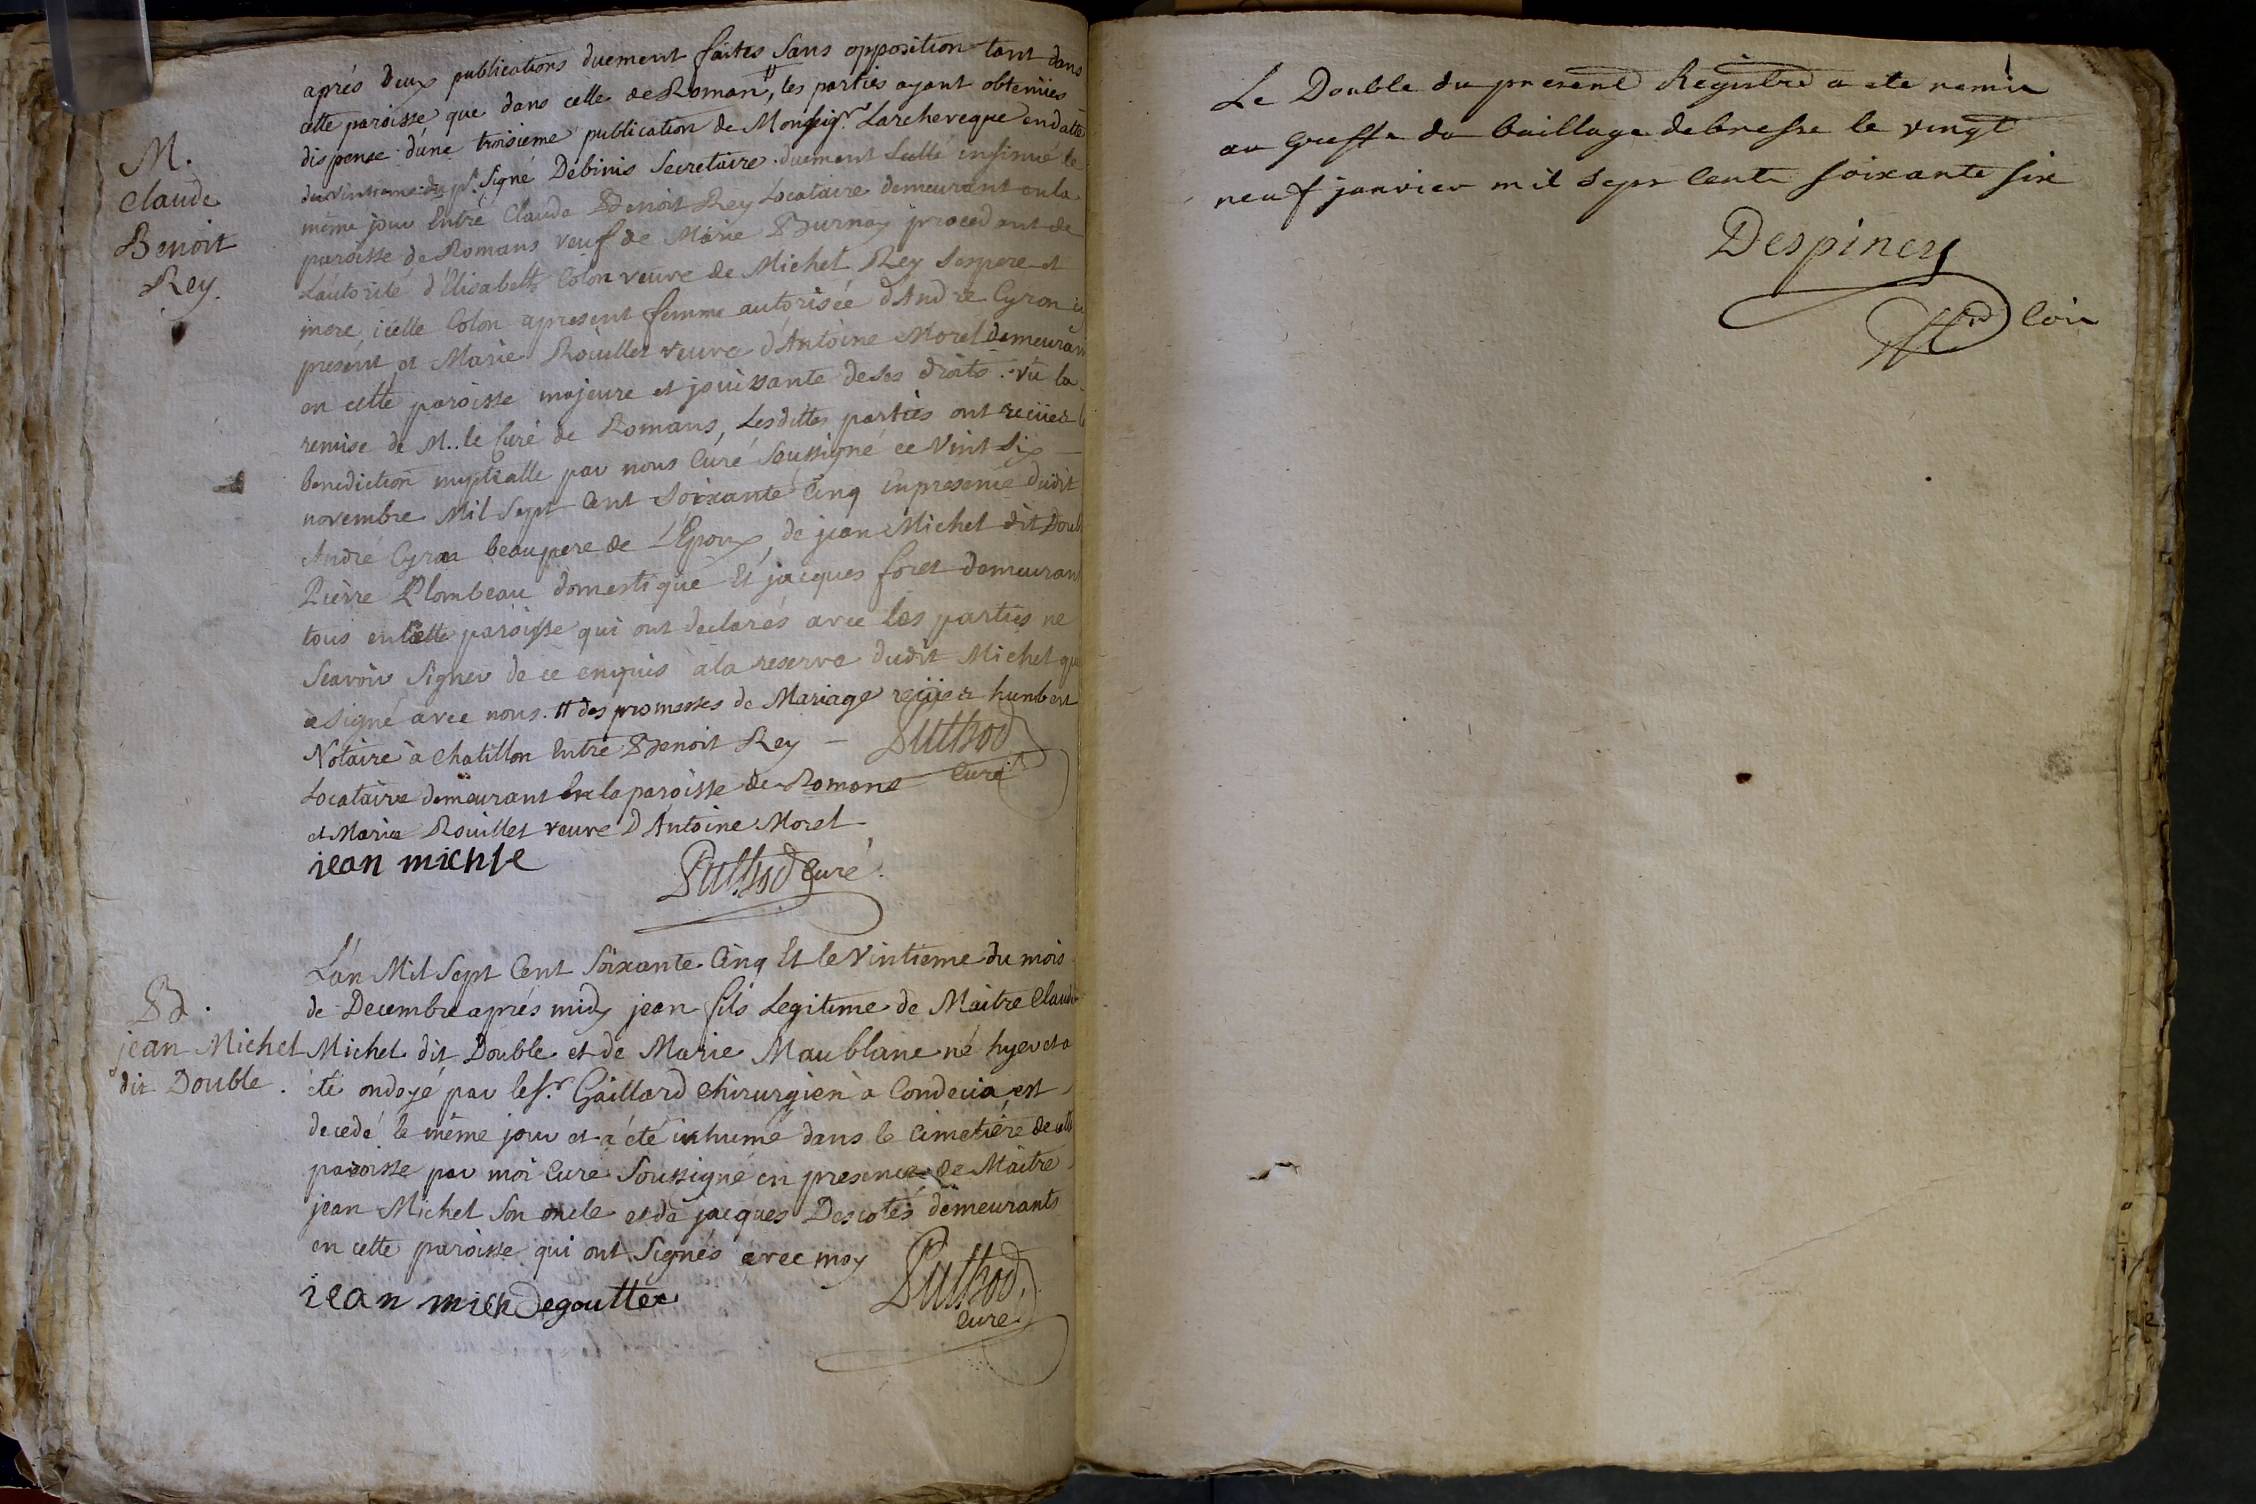 M.
Claude
Benoit
Rey.
aprés deux publications duement faites sans opposition tant dans
cette paroisse que dans celle de Roman, les parties ayant obtenües
dispense d'une troisieme publication de Monseigr. Larcheveque en datte
du pt. Signé Debinis Secretaire duement Sellé insinué le
même jour Entre Claude Benoit Rey Locataire demeurant en la
paroisse de Romans veuf de Marie Burnay procedant de
L'autorité d'Elisabeth Colon veuve de Michel Rey Ses pere et
mere, icelle Colon apresent femme autorisée d'André Cyron ici
present et Marie Roüillet veuve d'Antoine Morel demeurant
en cette paroisse majeure et joüissante de ses droits. vû la
remise de M.. le Curé de Romans, Lesdittes parties ont reçües la
benediction nuptialle par nous Curé Soussigné ce Vint Six
novembre Mil Sept Cent Soixante Cinq en presence dudit
André Cyron beaupere de L'Epoux, de jean Michel dit Double
Pierre Plombeau domestique Et jacques foret demeurant
tous en Cette paroisse qui ont declarés avec les parties ne
Scavoir Signer de ce enquis à la reserve dudit Michel qui
a signé avec nous. # des promesses de Mariage reçües humbert
Notaire à Chatillon Entre Benoit Rey
Locataire demeurant En la paroisse de Romans
et Marie Rouillet veuve D'Antoine Morel
Puthod
Curé
jean michle
Puthod Curé.
Bd.
jean Michel
dit Double.
L'an Mil Sept Cent Soixante Cinq Et le Vintieme du mois
de Decembre aprés midy jean fils Legitime de Maitre Claude
Michel dit Double et de Marie Maublanc né hyer et a
été ondoyé par le Sr. Gaillard Chirurgien à Condecia, est
decedé le même jour et a été inhumé dans le Cimetiére de cette
paroisse par moi Curé Soussigné en presence de Maitre
jean Michel Son oncle et de jacques Descotes demeurants
en cette paroisse qui ont Signés avec moy
Puthod,
Curé
jean mich Degouttex
Le Double du present Registre a ete remis
au Greffe du baillage de bresse le vingt
neuf janvier mil Sept Cent Soixante Six
Despiney